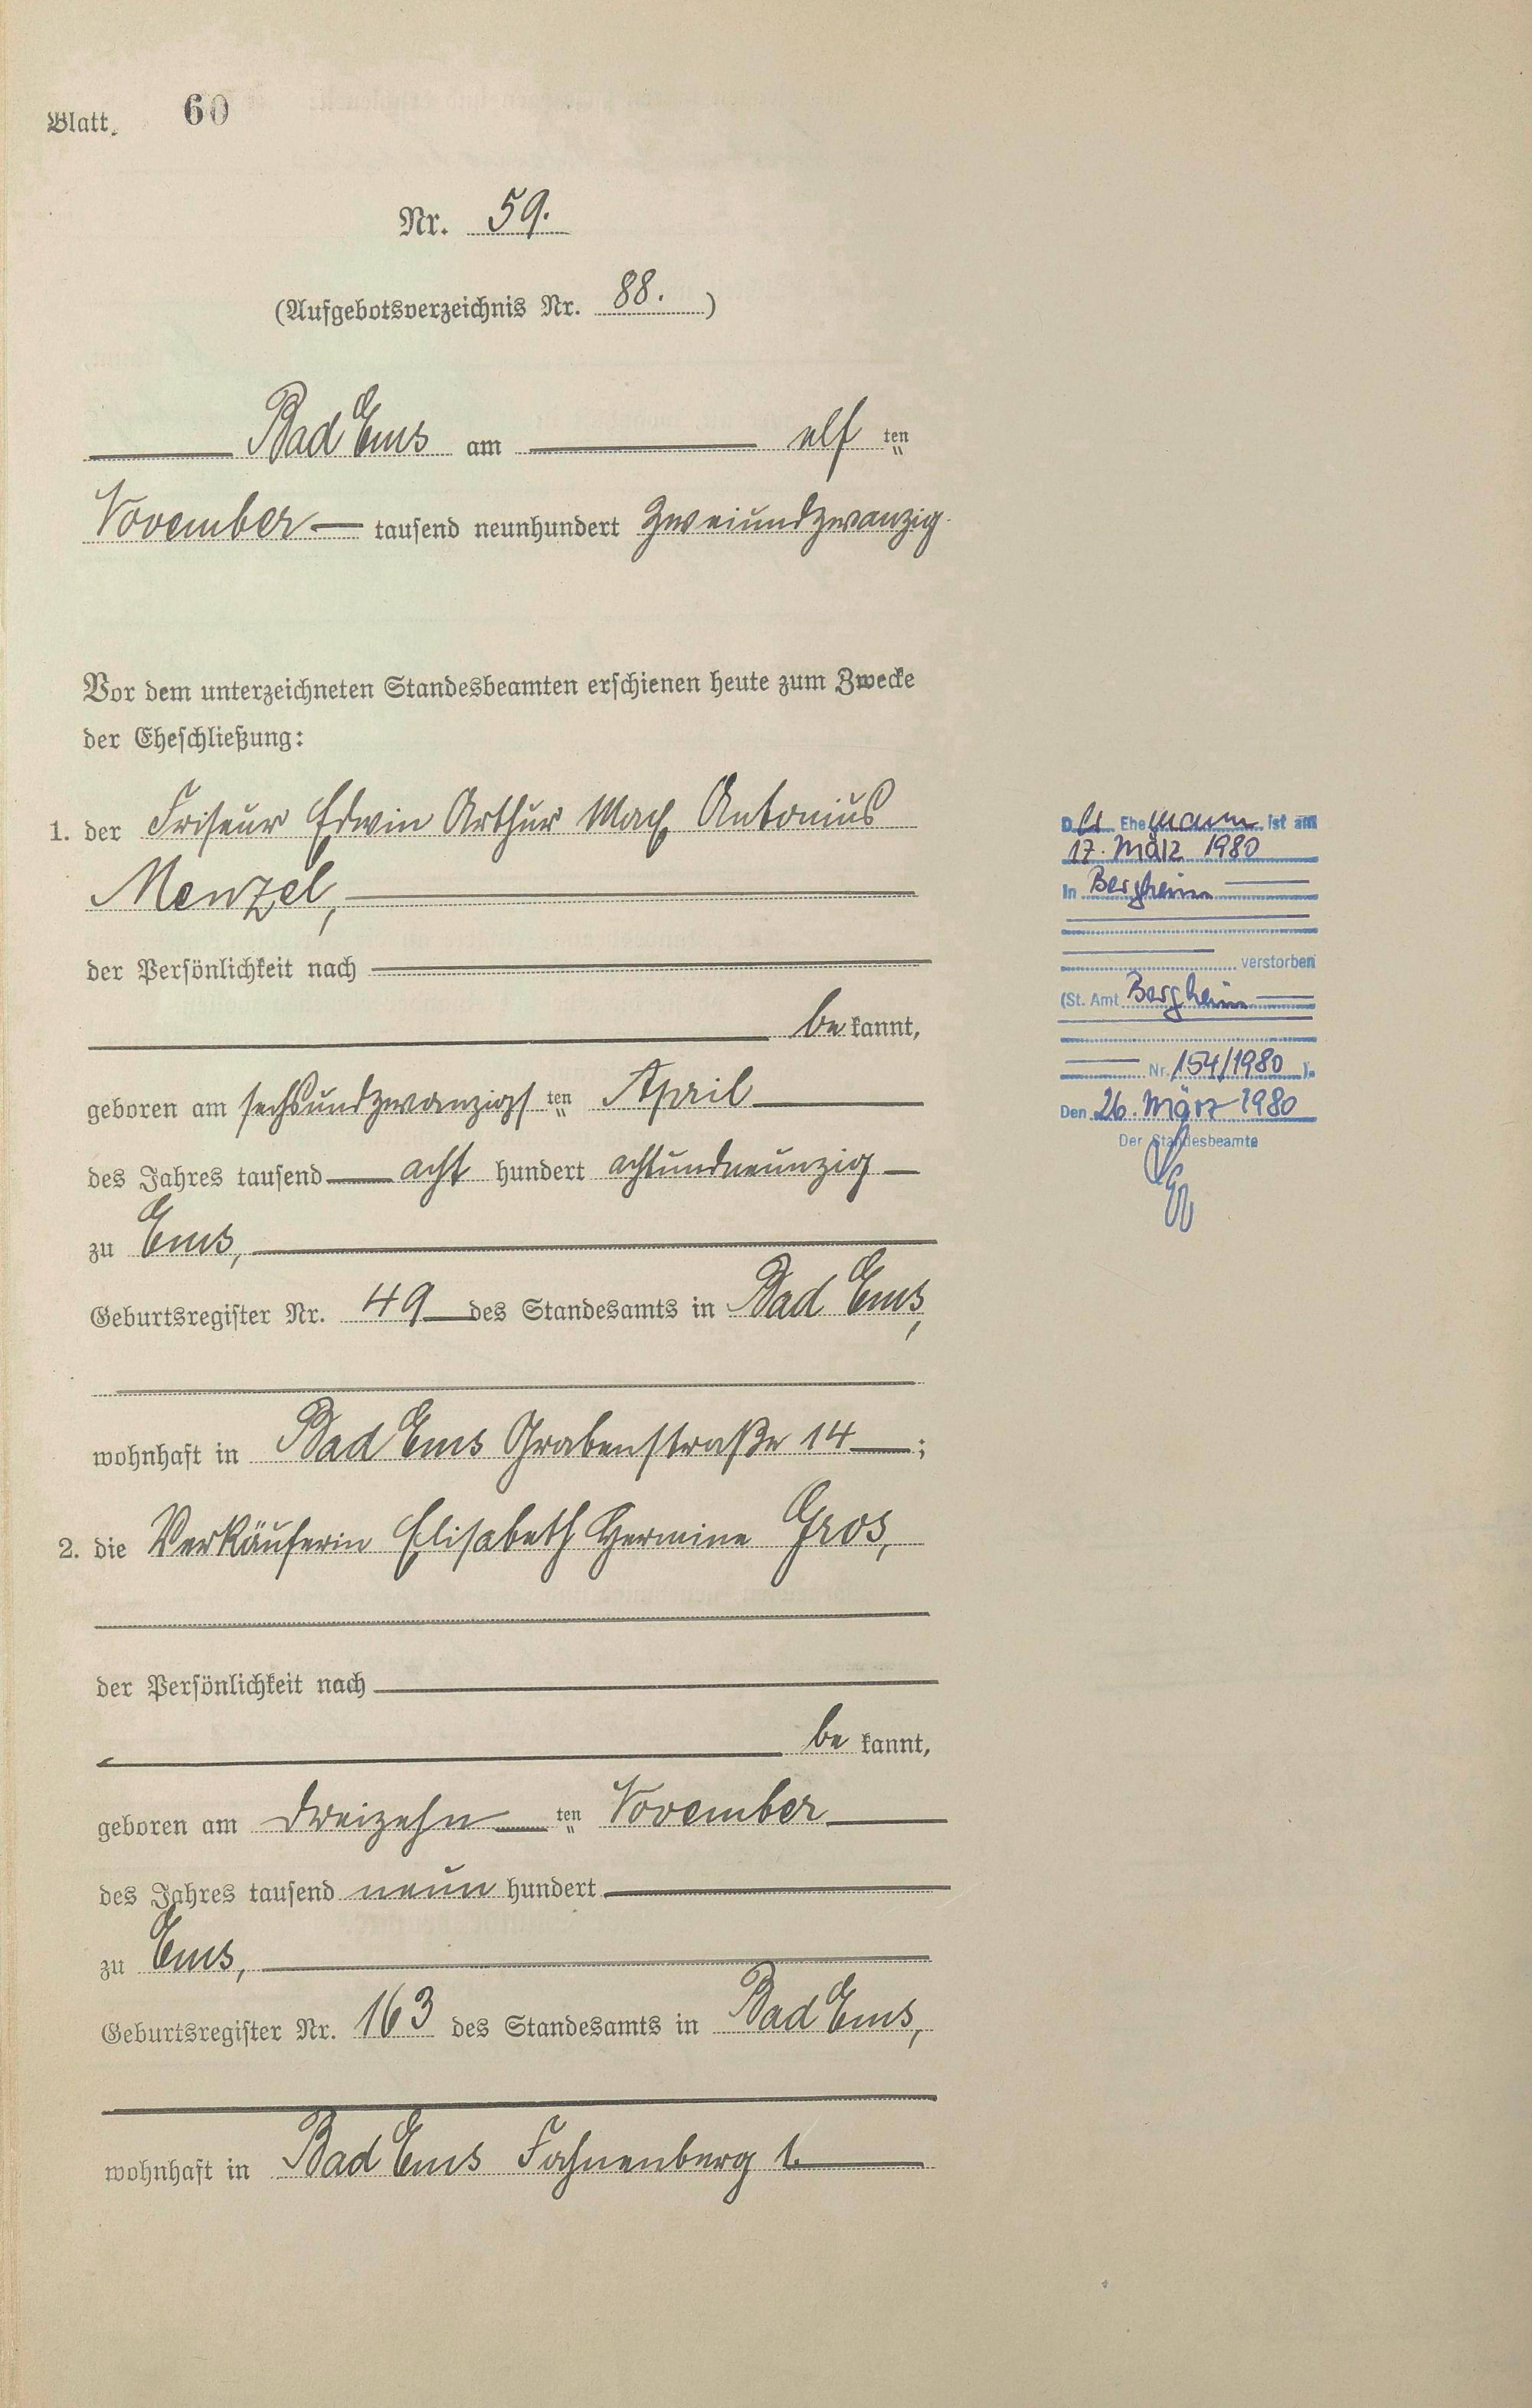 Blatt. 60
Nr. 59.
(Aufgebotsverzeichnis Nr. 88.)
Bad Ems am elf ten
November tausend neunhundert zweiundzwanzig.
Vor dem unterzeichneten Standesbeamten erschienen heute zum Zwecke
der Eheschließung:
1. der Friseur Edwin Arthur Max Antonius
Menzel,
der Persönlichkeit nach
be kannt,
geboren am sechsundzwanzigs ten April
des Jahres tausend acht hundert achtundneunzig
zu Ems,
Geburtsregister Nr. 49 des Standesamts in Bad Ems,
wohnhaft in Bad Ems Grabenstraße 14 ;
2. die Verkäuferin Elisabeth Hermine Gros,
der Persönlichkeit nach
be kannt,
geboren am dreizehn ten November
des Jahres tausend neun hundert
zu Ems,
Geburtsregister Nr. 163 des Standesamts in Bad Ems,
wohnhaft in Bad Ems Fahnenberg 1.
Der Ehemann ist am
17. März 1980
in Bergheim
verstorben
(St. Amt Bergheim
Nr. 154/1980 ).
Den 26. März 1980
Der Standesbeamte